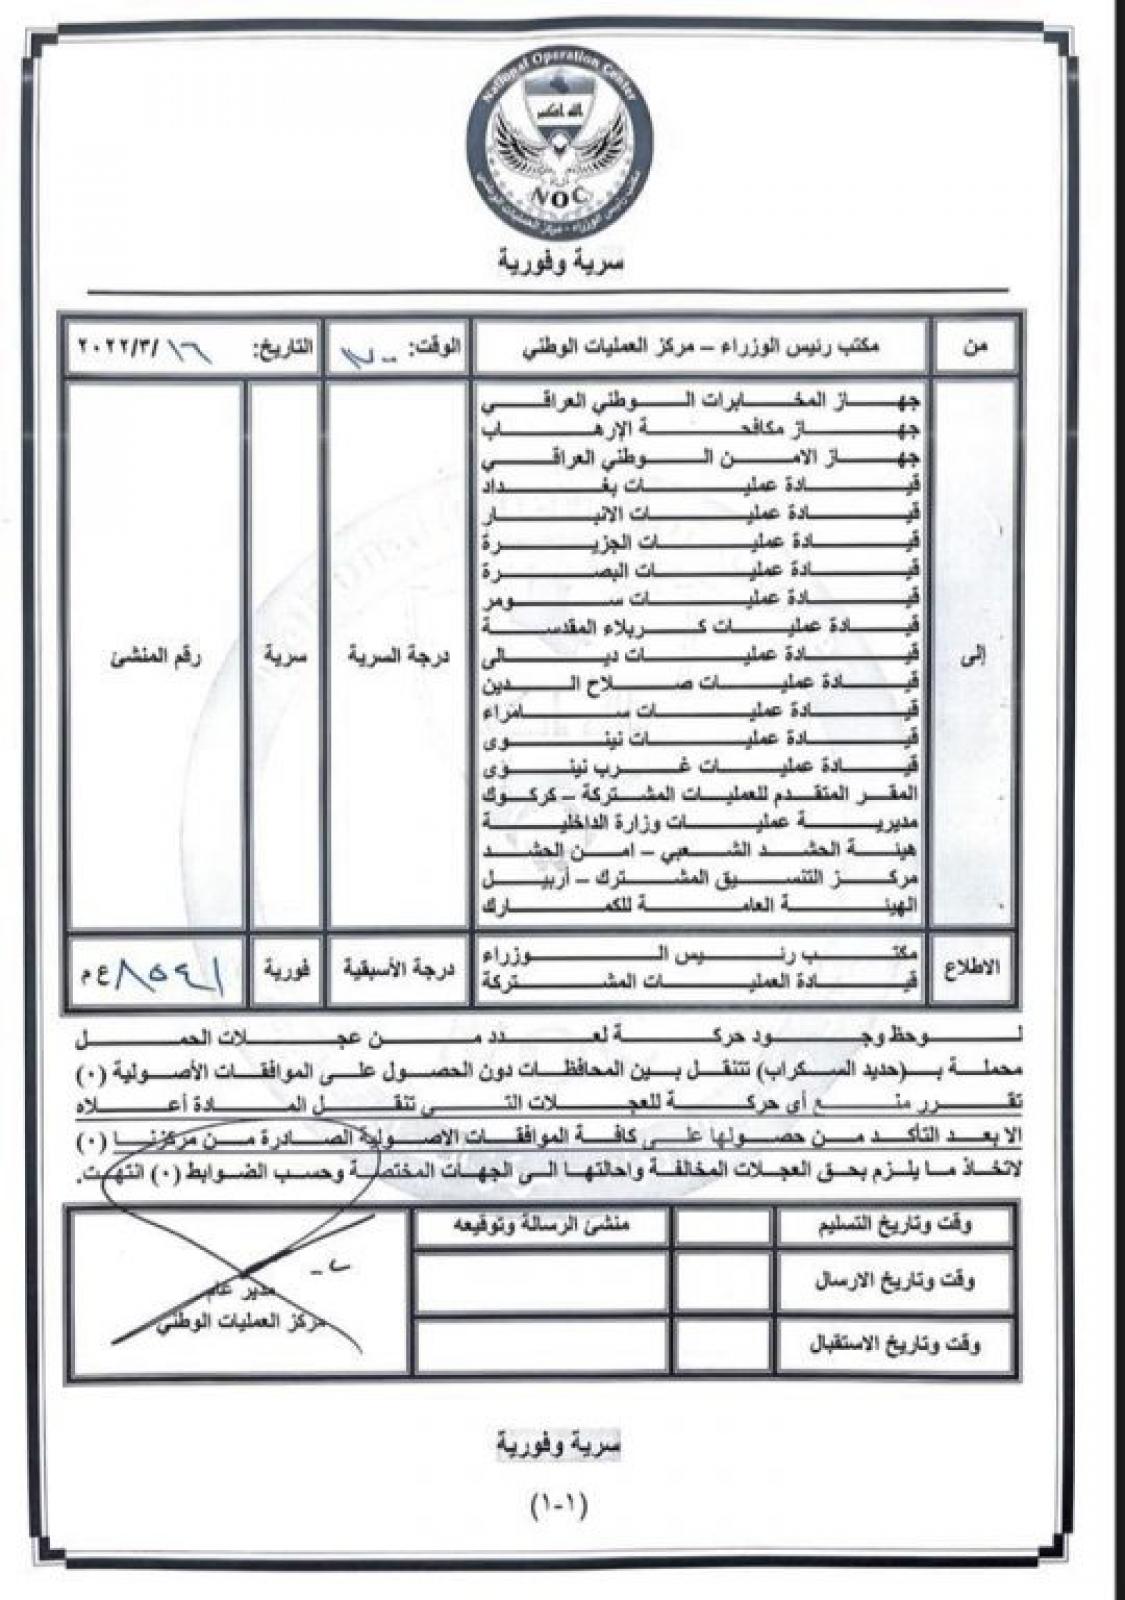 National Operation Center
الله اكبر
NOC
مكتب رئيس الوزراء - مركز العمليات الوطني
سرية وفورية
من
مكتب رئيس الوزراء – مركز العمليات الوطني
الوقت:
التاريخ: ١٦/٣/٢٠٢٢
إلى
جهاز المخابرات الوطني العراقي
جهاز مكافحة الإرهاب
جهاز الامن الوطني العراقي
قيادة عمليات بغداد
قيادة عمليات الانبار
قيادة عمليات الجزيرة
قيادة عمليات البصرة
قيادة عمليات سومر
قيادة عمليات كربلاء المقدسة
قيادة عمليات ديالى
قيادة عمليات صلاح الدين
قيادة عمليات سامراء
قيادة عمليات نينوى
قيادة عمليات غرب نينوى
المقر المتقدم للعمليات المشتركة – كركوك
مديرية عمليات وزارة الداخلية
هيئة الحشد الشعبي – امن الحشد
مركز التنسيق المشترك – أربيل
الهيئة العامة للكمارك
درجة السرية
سرية
رقم المنشئ
الاطلاع
مكتب رئيس الوزراء
قيادة العمليات المشتركة
درجة الأسبقية
فورية
٨٥٤١ ع م
لوحظ وجود حركة لعدد من عجلات الحمل
محملة بـ(حديد السكراب) تتنقل بين المحافظات دون الحصول على الموافقات الأصولية (٠)
تقرر منع أي حركة للعجلات التي تنقل المادة أعلاه
الا بعد التأكد من حصولها على كافة الموافقات الاصولية الصادرة من مركزنا (٠)
لاتخاذ ما يلزم بحق العجلات المخالفة واحالتها الى الجهات المختصة وحسب الضوابط (٠) انتهت.
وقت وتاريخ التسليم
منشئ الرسالة وتوقيعه
وقت وتاريخ الارسال
وقت وتاريخ الاستقبال
مدير عام
مركز العمليات الوطني
سرية وفورية
(١-١)